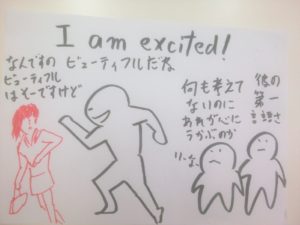 I am excited!
なんですの
ビューティフル
はそーですけど
ビューティフルだね
何も考えて
ないのに
あれが心に
うかぶのか
彼の
第一
言語さ